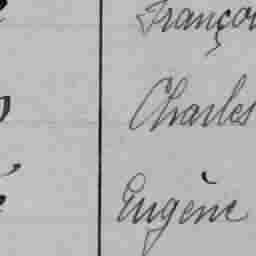 Françoi
Charles
Eugène